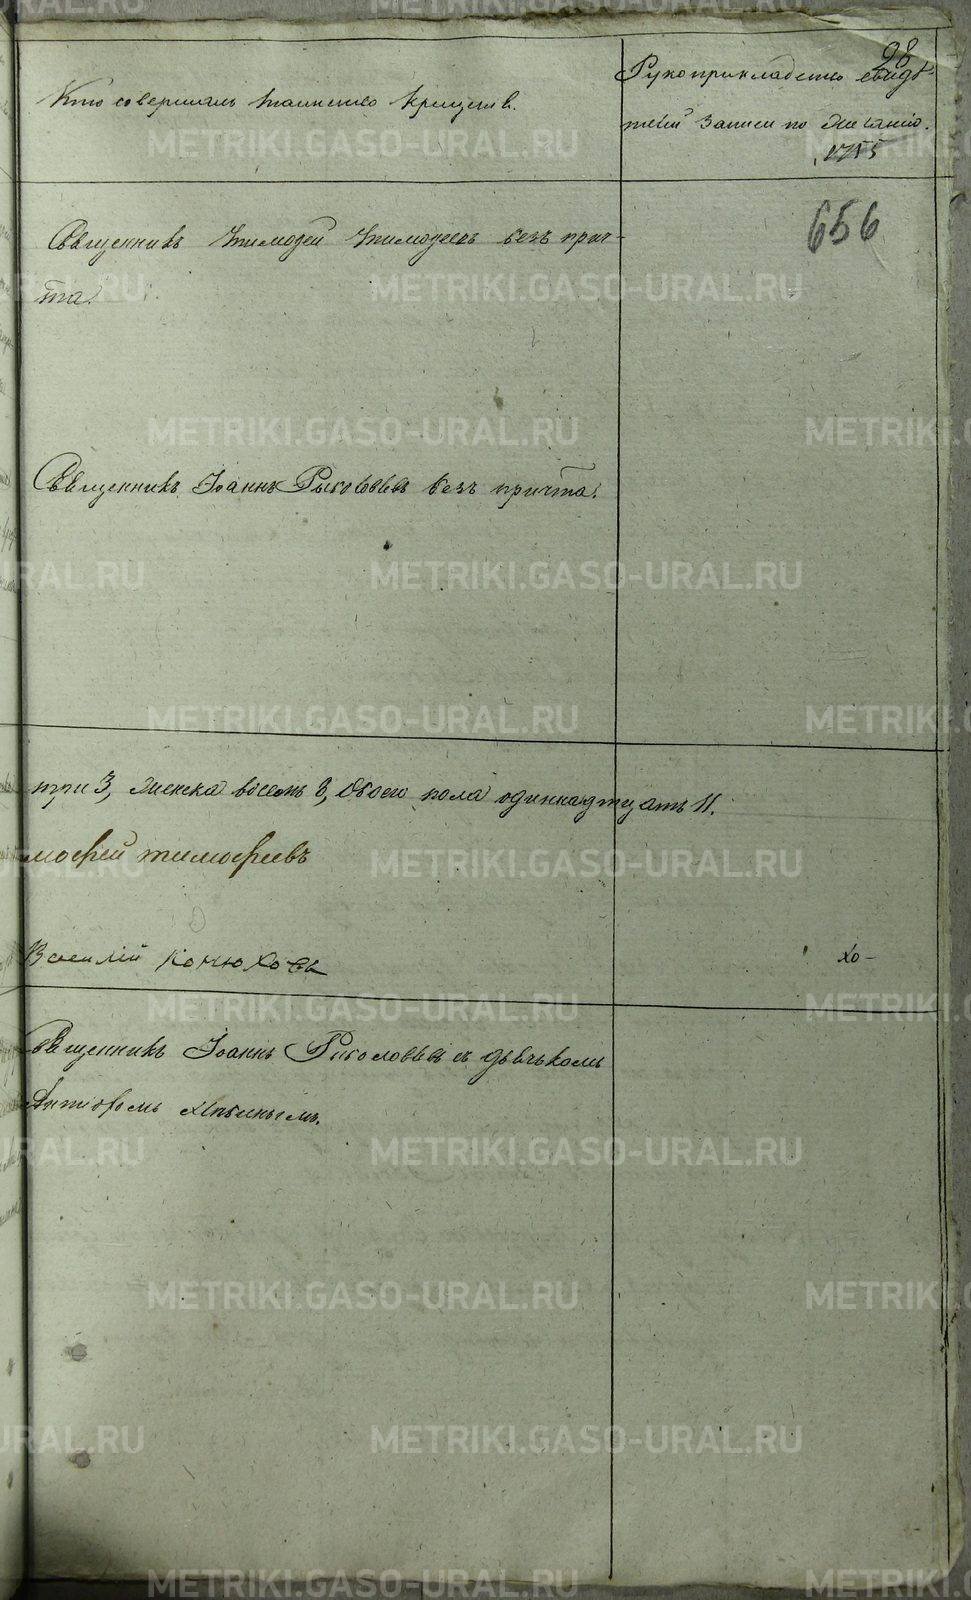 98
Кто совершалъ таинство крещенія.
Рукоприкладство свидѣ-
телей записи по желанію.
656
Священникъ Тимофей Тимофеевъ безъ прич-
та.
Священникъ Іоаннъ безъ причта.
три 3, женска восемь 8, обоего пола одиннадцать 11.
мофей тимофеевъ
Василій Конюховъ
хо-
Священникъ Іоаннъ съ дьячкомъ
METRIKI.GASO-URAL.RU